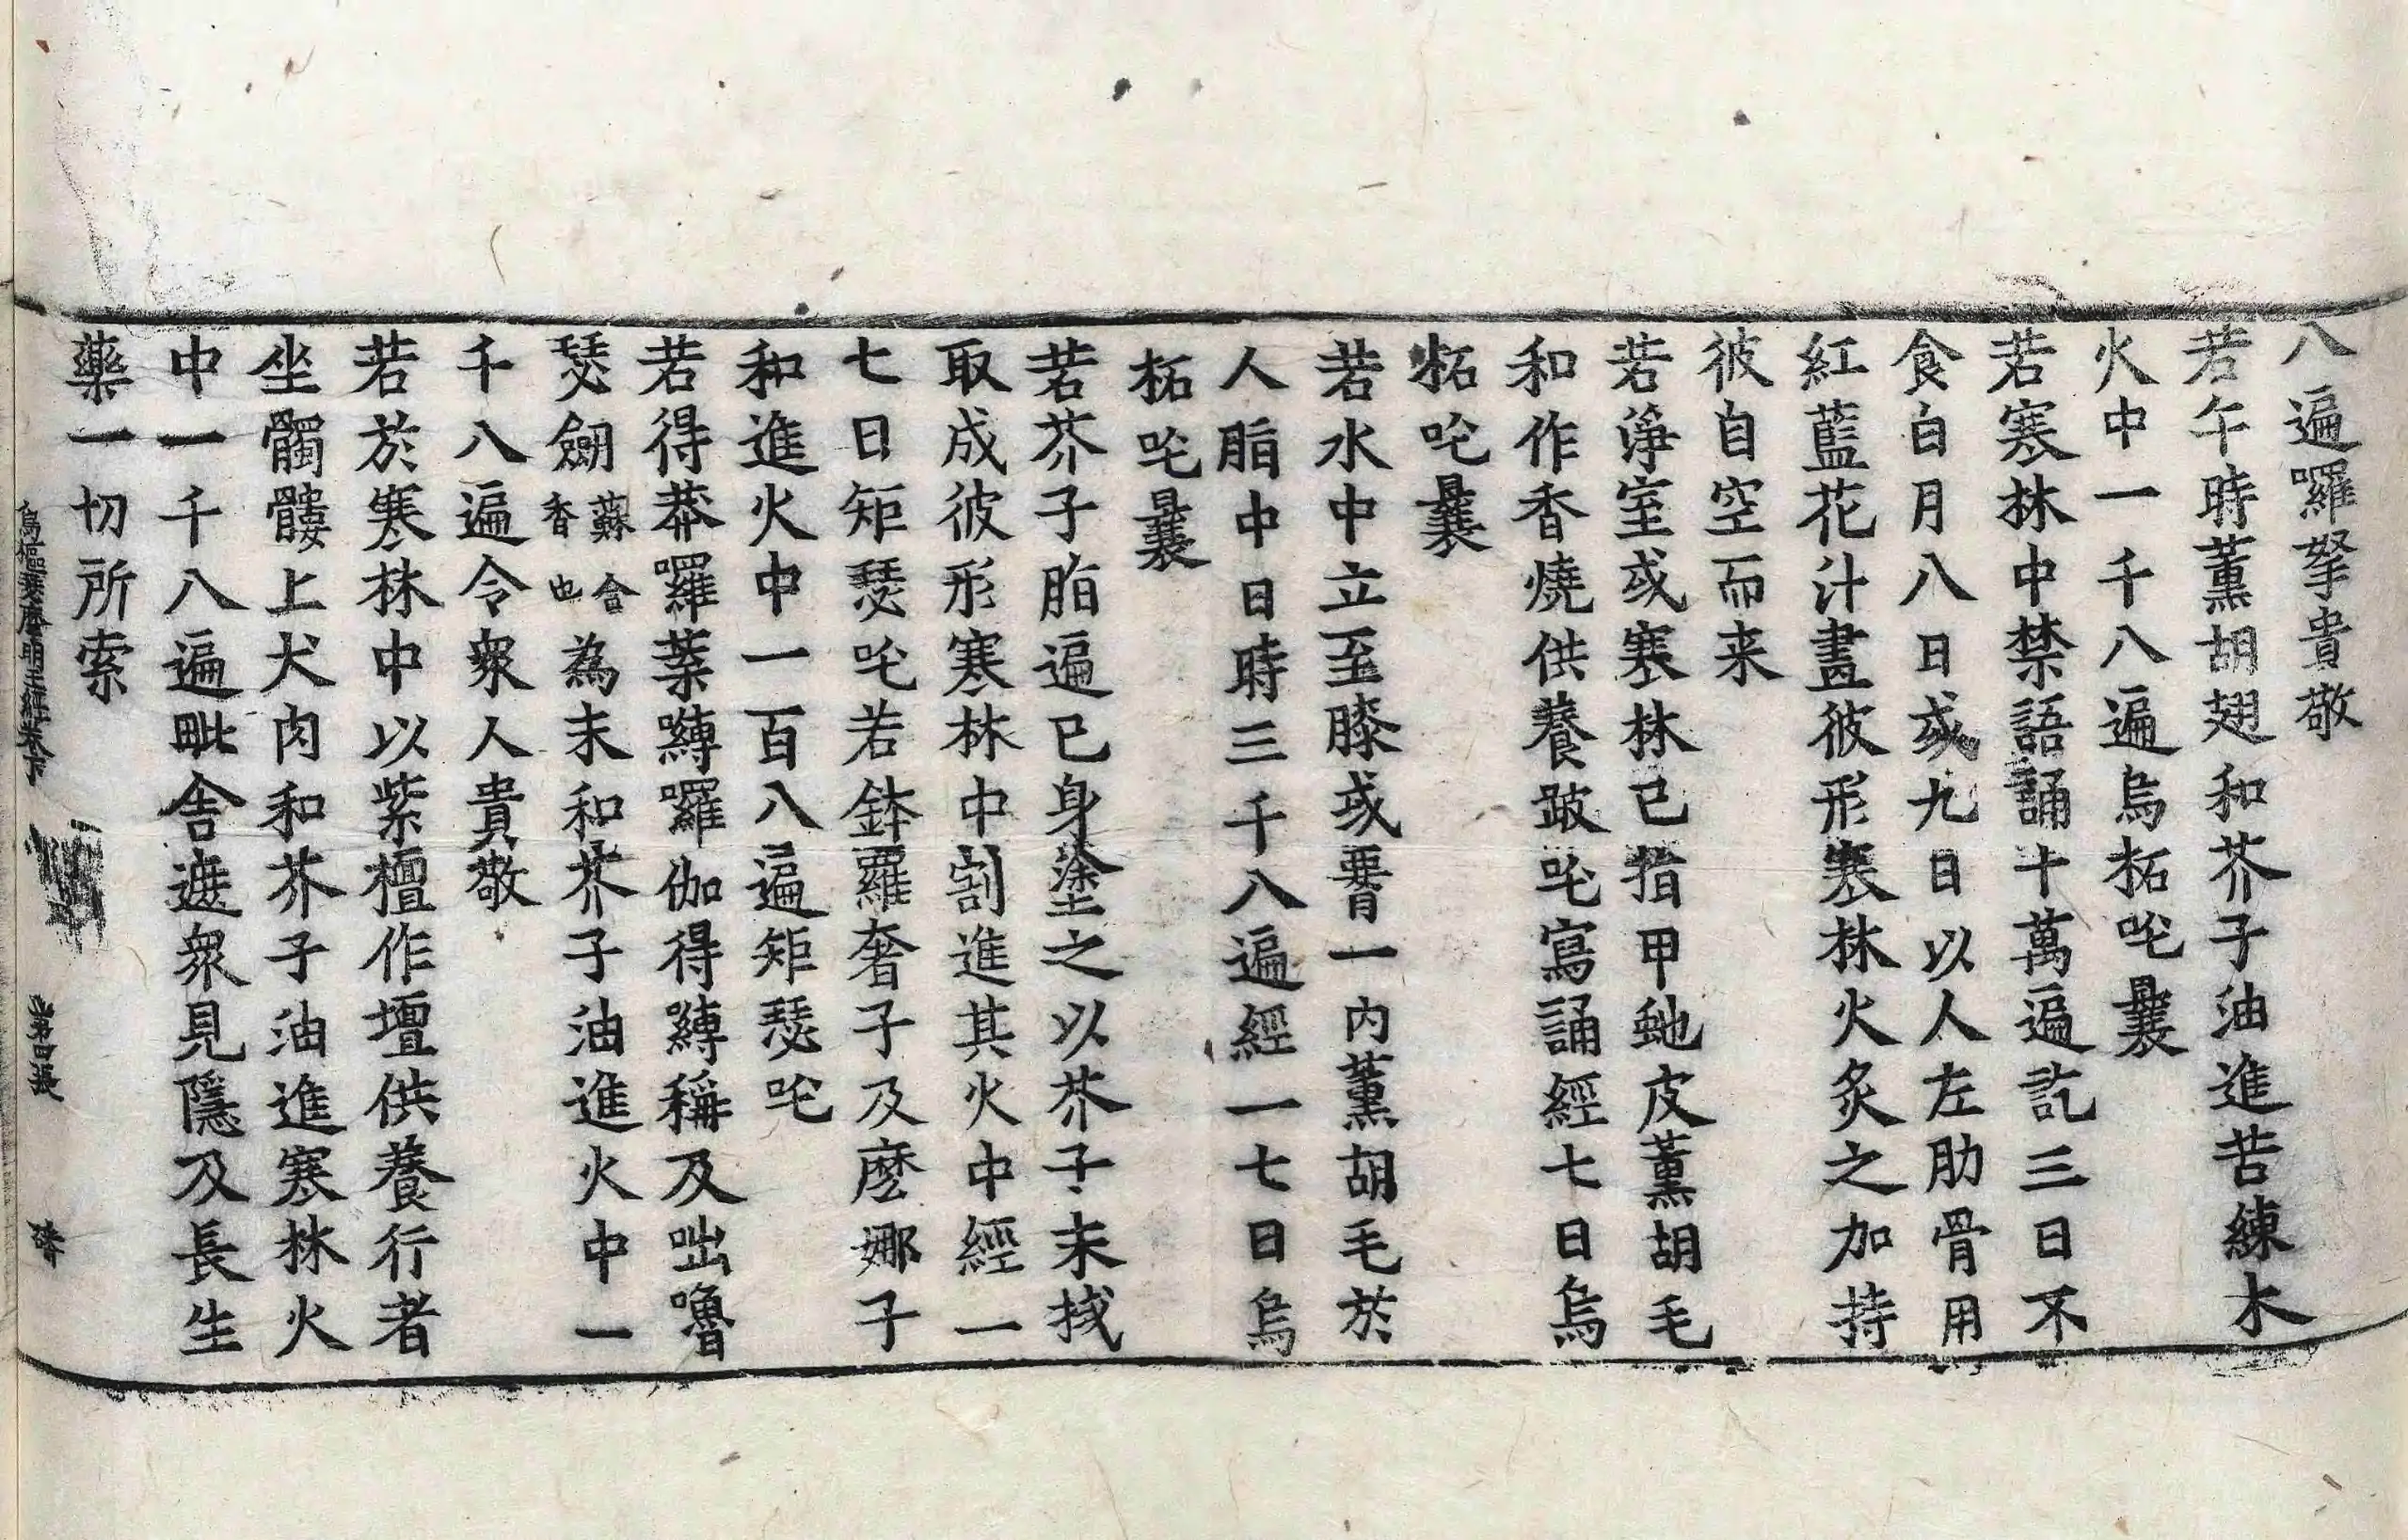 八遍囉拏貴敬
若午時薰胡翅和芥子油進苦練木
火中一千八遍烏柘吒曩
若寒林中禁語誦十萬遍訖三日不
食白月八日或九日以人左肋骨用
紅藍花汁畫彼形寒林火炙之加持
彼自空而来
若淨室或寒林己指甲虵皮薰胡毛
和作香燒供養跛吒寫誦經七日烏
柘吒曩
若水中立至膝或𦝫一內薰胡毛於
人脂中日時三千八遍經一七日烏
柘吒曩
若芥子脂遍己身塗之以芥子末𢪛
取成彼形寒林中割進其火中經一
七日矩瑟吒若鉢羅奢子及麽娜子
和進火中一百八遍矩瑟吒
若得莽囉葉嚩囉伽得嚩稱及咄嚕
瑟劒蘇合香也為末和芥子油進火中一
千八遍令衆人貴敬
若於寒林中以紫檀作壇供養行者
坐髑髏上犬肉和芥子油進寒林火
中一千八遍毗舍遮衆見隱及長生
藥一切所索
烏樞瑟麽明王經卷下 第四張